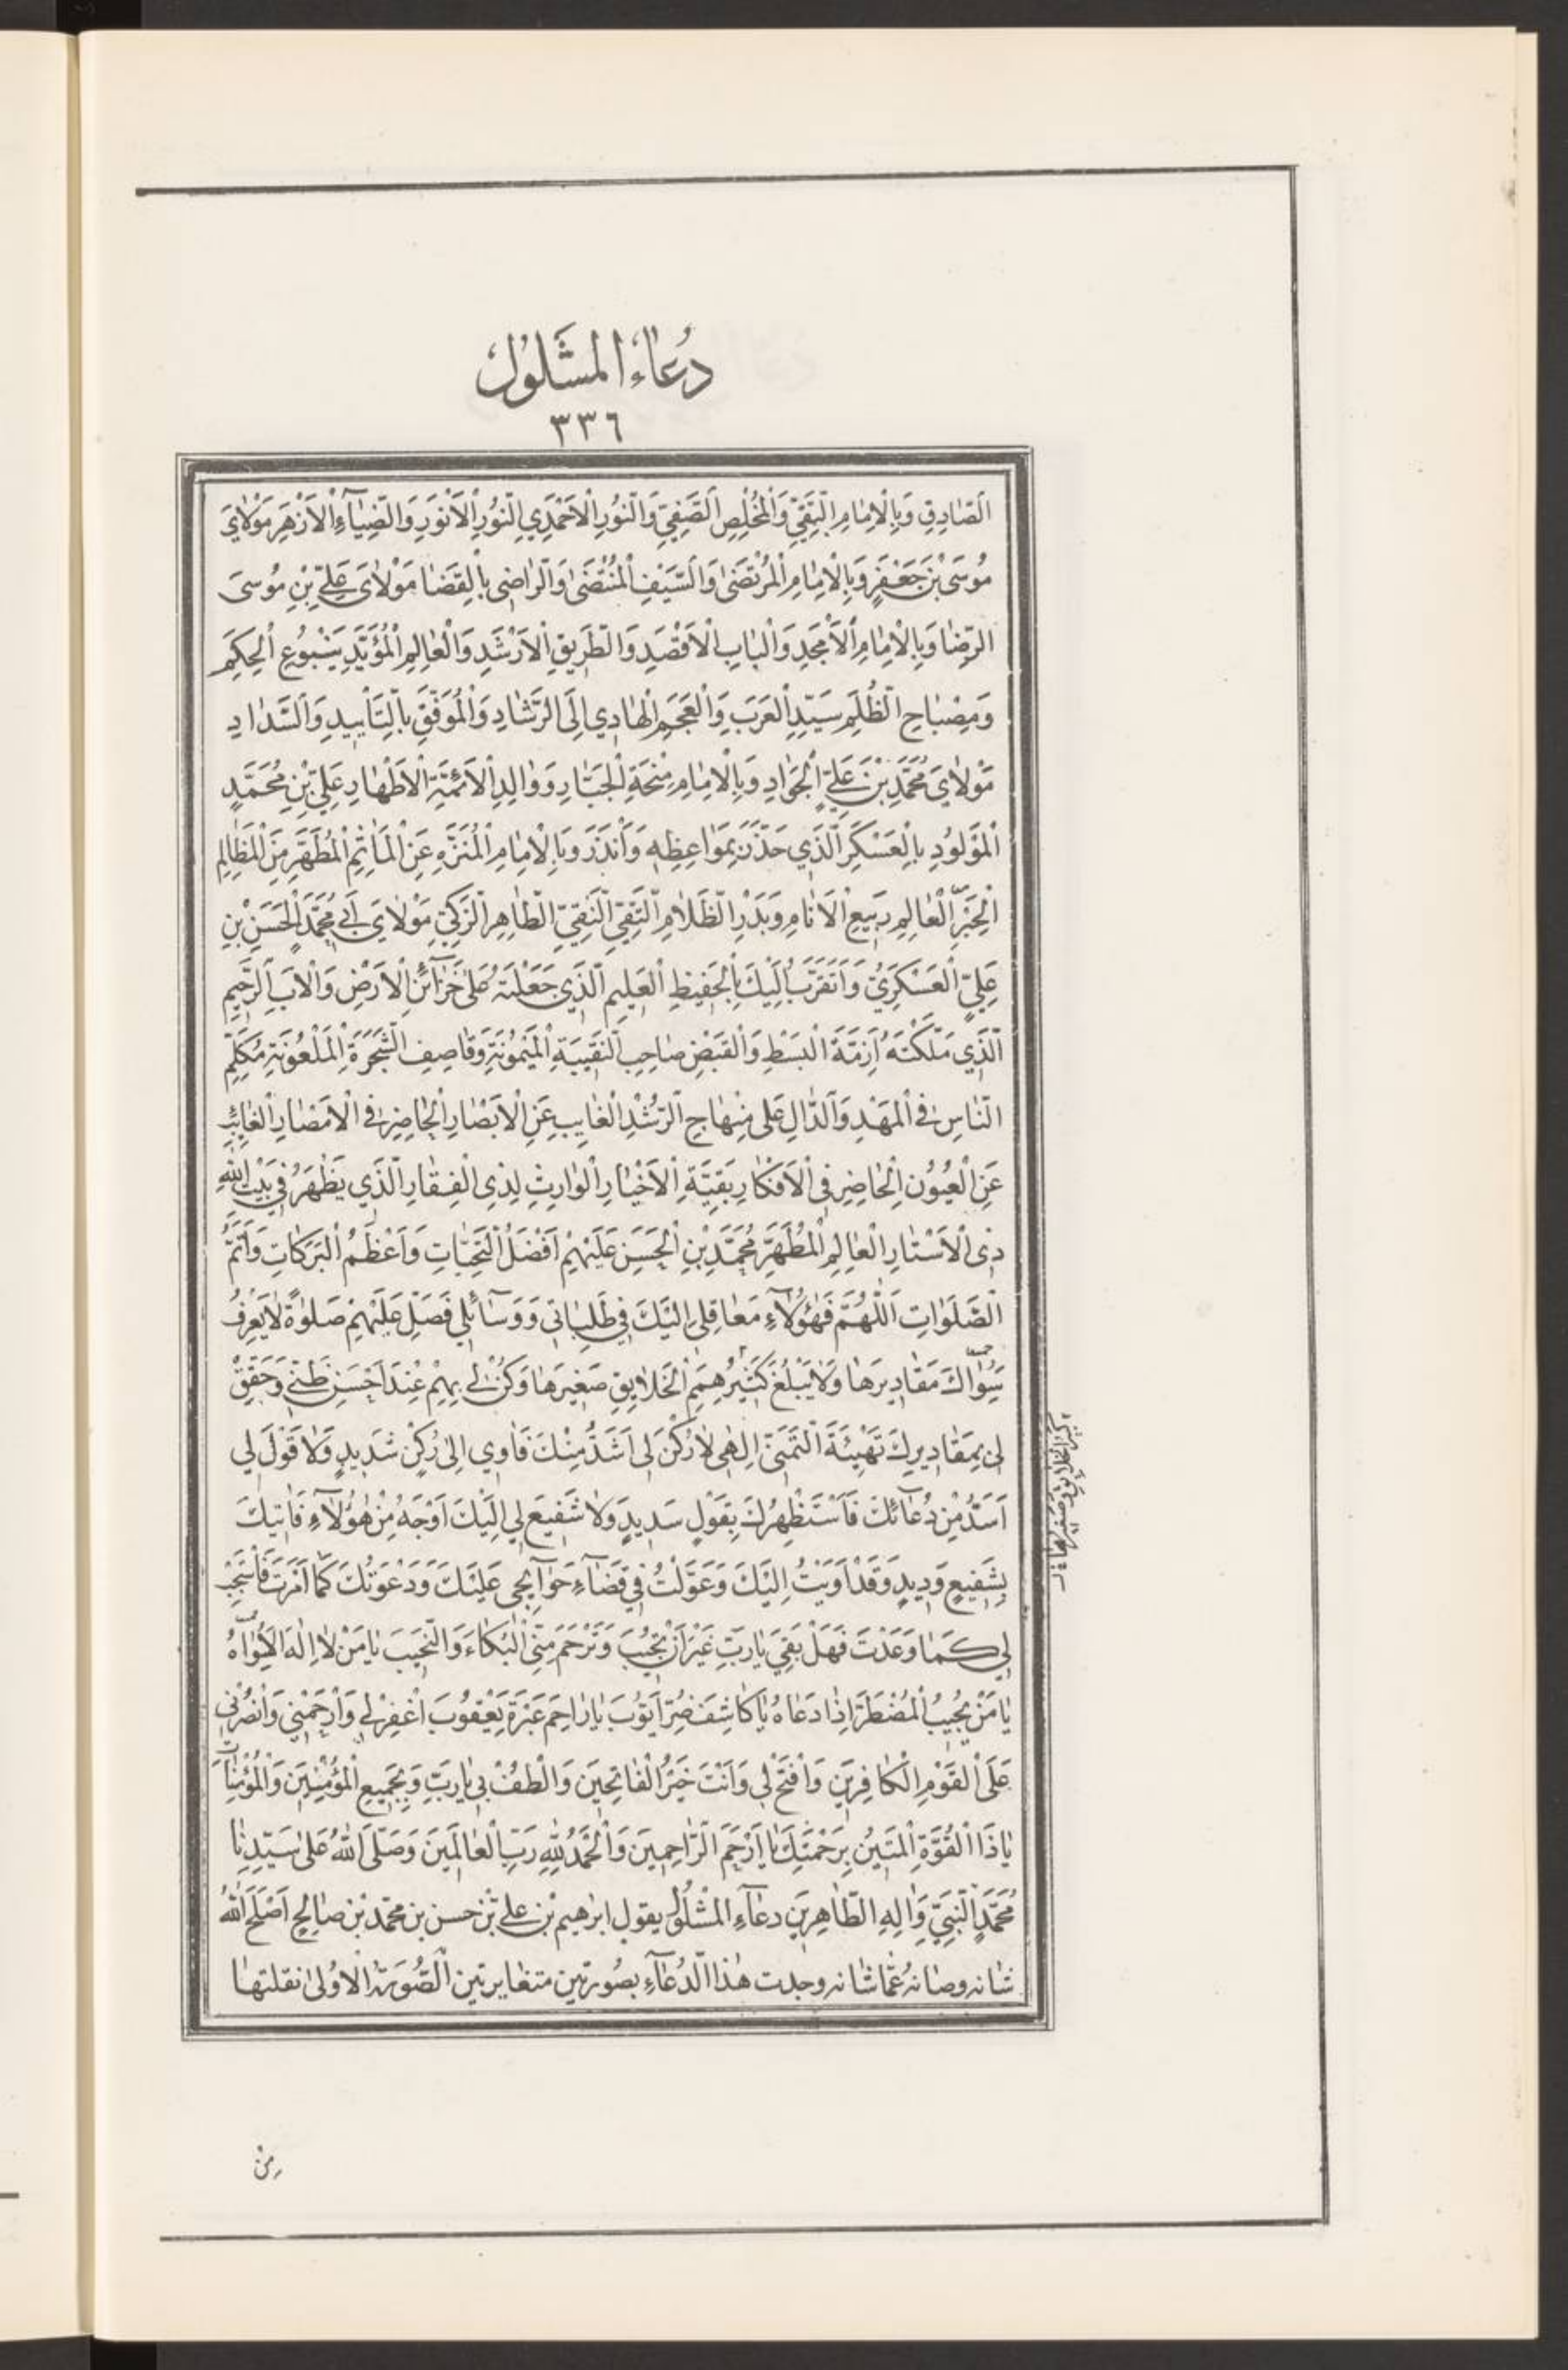 دُعاءُ المَشْلُولِ
٣٣٦
اَلصّادِقِ وَبِالْاِمامِ التَّقِيِّ وَالْمُخْلِصِ الصَّفِيِّ وَالنُّورِ الْاَحْمَدِيِ النُّورِ الْاَنْوَرِ وَالضِّيآءِ الْاَزْهَرِ مَوْلايَ
مُوسَى بْنِ جَعْفَرٍ وَبِالْاِمامِ الْمُرْتَضىٰ وَالسَّيْفِ الْمُنْتَضىٰ وَالرّاضى بِالْقِضا مَوْلايَ عَلِيِّ بْنِ مُوسىَ
الرِّضا وَبِالْاِمامِ الْاَمْجَدِ وَالْبابِ الْاَقْصَدِ وَالطَّرِيقِ الْاَرْشَدِ وَالْعالِمِ الْمُؤَيَّدِ يَنْبُوعِ الْحِكَمِ
وَمِصْباحِ الظُّلَمِ سَيِّدِ الْعَرَبِ وَالْعَجَمِ الْهادِي اِلَى الرَّشادِ وَالْمُوَفَّقِ بِالتَّأْيِيدِ وَالسَّدادِ
مَوْلايَ مُحَمَّدِ بْنِ عَلِيٍّ الْجَوادِ وَبِالْاِمامِ مِنْحَةِ الْجَبّارِ وَوالِدِ الْاَئِمَّةِ الْاَطْهارِ عَلِيِّ بْنِ مُحَمَّدٍ
الْمَوْلُودِ بِالْعَسْكَرِ الَّذِي حَذَّرَ بِمَواعِظِهِ وَاَنْذَرَ وَبِالْاِمامِ الْمُنَزَّهِ عَنِ الْمَآثِمِ الْمُطَهَّرِ مِنَ الْمَظالِمِ
الْحِبْرِ الْعالِمِ رَبيعِ الْاَنامِ وَبَدْرِ الظَّلامِ التَّقِيِّ النَّقِيِّ الطّاهِرِ الزَّكِيِّ مَوْلايَ اَبي مُحَمَّدٍ الْحَسَنِ بْنِ
عَلِيٍّ الْعَسْكَرِيِّ وَاَتَقَرَّبُ اِلَيْكَ بِالْحَفِيظِ الْعَلِيمِ الَّذِي جَعَلْتَهُ عَلىٰ خَزآئِنِ الْاَرْضِ وَالْاَبِ الرَّحِيمِ
الَّذِي مَلَّكْتَهُ اَزِمَّةَ الْبَسْطِ وَالْقَبْضِ صاحِبِ النَّقِيبَةِ الْمَيْمُونَةِ وَقاصِفِ الشَّجَرَةِ الْمَلْعُونَةِ مُكَلِّمِ
النّاسِ فِي الْمَهْدِ وَالدّالِ عَلى مِنْهاجِ الرُّشْدِ الْغايِبِ عَنِ الْاَبْصارِ الْحاضِرِ في الْاَمْصارِ الْغائِبِ
عَنِ الْعُيُونِ الْحاضِرِ فِي الْاَفْكارِ بَقِيَّةِ الْاَخْيارِ الْوارِثِ لِذِى الْفِقارِ الَّذِي يَظْهَرُ فِي بَيْتِ اللّٰهِ
ذِى الْاَسْتارِ الْعالِمِ الْمُطَهَّرِ مُحَمَّدِ بْنِ الْحَسَنِ عَلَيْهِمْ اَفْضَلُ التَّحِيّاتِ وَاَعْظَمُ الْبَرَكاتِ وَاَتَمُّ
الصَّلَواتِ اَللّٰهُمَّ فَهٰؤُلآءِ مَعاقِلي اِلَيْكَ فِي طَلِباتي وَوَسآئِلي فَصَلِّ عَلَيْهِمْ صَلوٰةً لا يَعْرِفُ
سِواكَ مَقادِيرَها وَلا يَبْلُغُ كَثِيرُ هِمَمِ الْخَلايِقِ صَغِيرَها وَكُنْ لي بِهِمْ عِنْدَ اَحْسَنِ ظَنّي وَحَقِّقْ
لي بِمَقادِيرِكَ تَهْيِئَةَ التَّمَنّي اِلٰهي لا رُكْنَ لي اَشَدُّ مِنْكَ فَاٰوِي اِلىٰ رُكْنٍ شَدِيدٍ وَلا قَوْلَ لي
اَسَدُّ مِنْ دُعآئِكَ فَاَسْتَظْهِرُكَ بِقَوْلٍ سَدِيدٍ وَلا شَفِيعَ لي اِلَيْكَ اَوْجَهُ مِنْ هٰؤُلآءِ فَاٰتِيكَ
بِشَفِيعٍ وَدِيدٍ وَقَدْ اَوَيْتُ اِلَيْكَ وَعَوَّلْتُ فِي قَضآءِ حَوآئِجي عَلَيْكَ وَدَعَوْتُكَ كَما اَمَرْتَ فَاسْتَجِبْ
لي كَما وَعَدْتَ فَهَلْ بَقِيَ يا رَبِّ غَيْرُ اَنْ تُجيبَ وَتَرْحَمَ مِنِّي الْبُكاءَ وَالنَّحِيبَ يا مَنْ لا اِلٰهَ سِواهُ
يا مَنْ يُجِيبُ الْمُضْطَرَّ اِذا دَعاهُ يا كاشِفَ ضُرِّ اَيُّوبَ يا راحِمَ عَبْرَةِ يَعْقُوبَ اغْفِرْ لي وَارْحَمْني وَانْصُرْني
عَلَى الْقَوْمِ الْكافِرِينَ وَافْتَحْ لي وَاَنْتَ خَيْرُ الْفاتِحِينَ وَالْطُفْ بي يا رَبِّ وَبِجَمِيعِ الْمُؤْمِنِينَ وَالْمُؤْمِناتِ
يا ذَا الْقُوَّةِ الْمَتِينُ بِرَحْمَتِكَ يا اَرْحَمَ الرّاحِمِينَ وَالْحَمْدُ لِلّٰهِ رَبِّ الْعالَمِينَ وَصَلَّى اللّٰهُ عَلىٰ سَيِّدِنا
مُحَمَّدٍ النَّبِيِّ وَاٰلِهِ الطّاهِرِينَ دعآءِ المَشْلُولُ يقول ابرٰهيم بْن علي بْن حسن بن محمّد بْن صالحٍ اَصْلَحَ اللّٰهُ
شانه وصانهُ عمّا شانه وجدت هٰذا الدُّعآءِ بصُورتين متغايرتين الصُّورَةُ الْاُولىٰ نقلتها
مِنْ